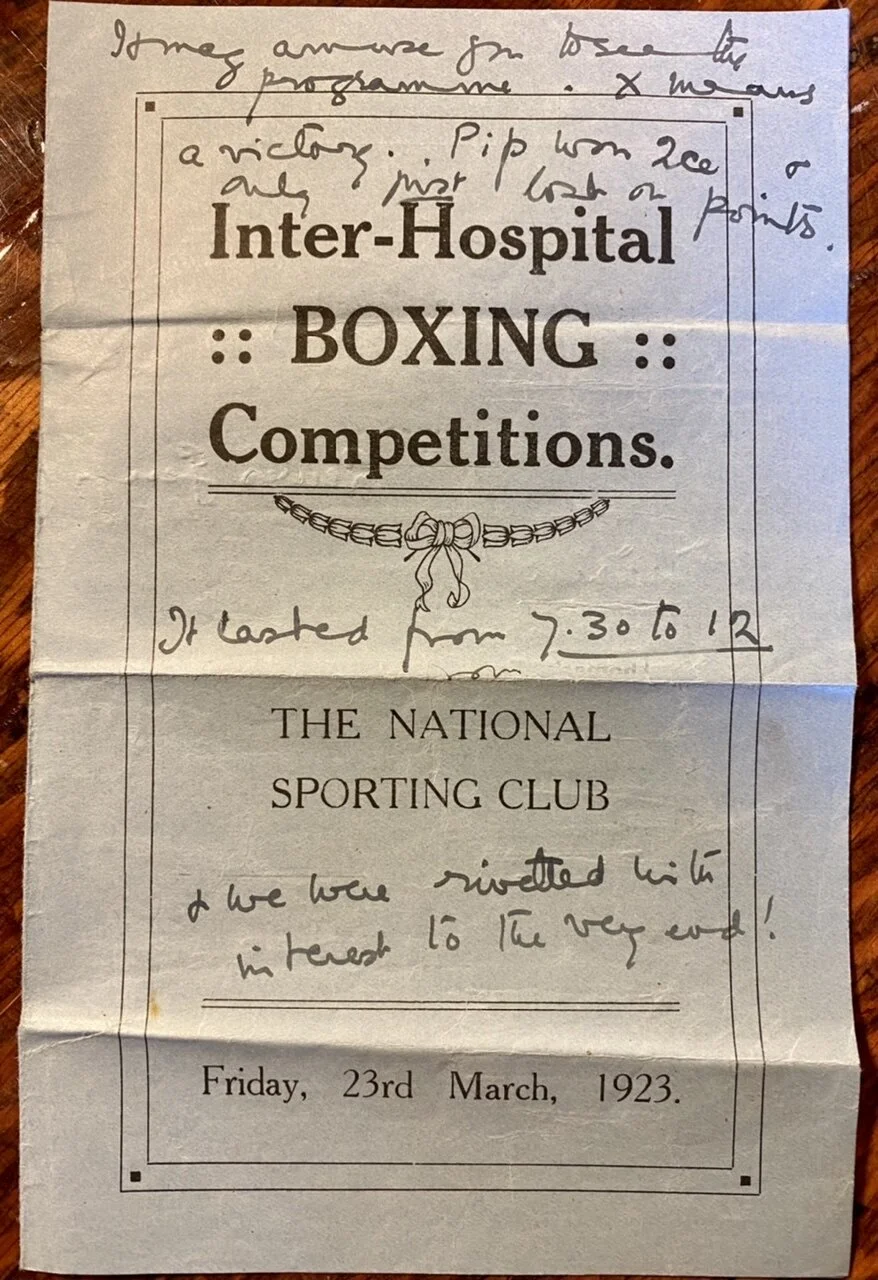 It may amuse you to see the
programme . X means
a victory. Pip won 2ce &
only just lost on points.
Inter-Hospital
:: BOXING ::
Competitions.
It lasted from 7.30 to 12
THE NATIONAL
SPORTING CLUB
& we were rivetted with
interest to the very end!
Friday, 23rd March, 1923.